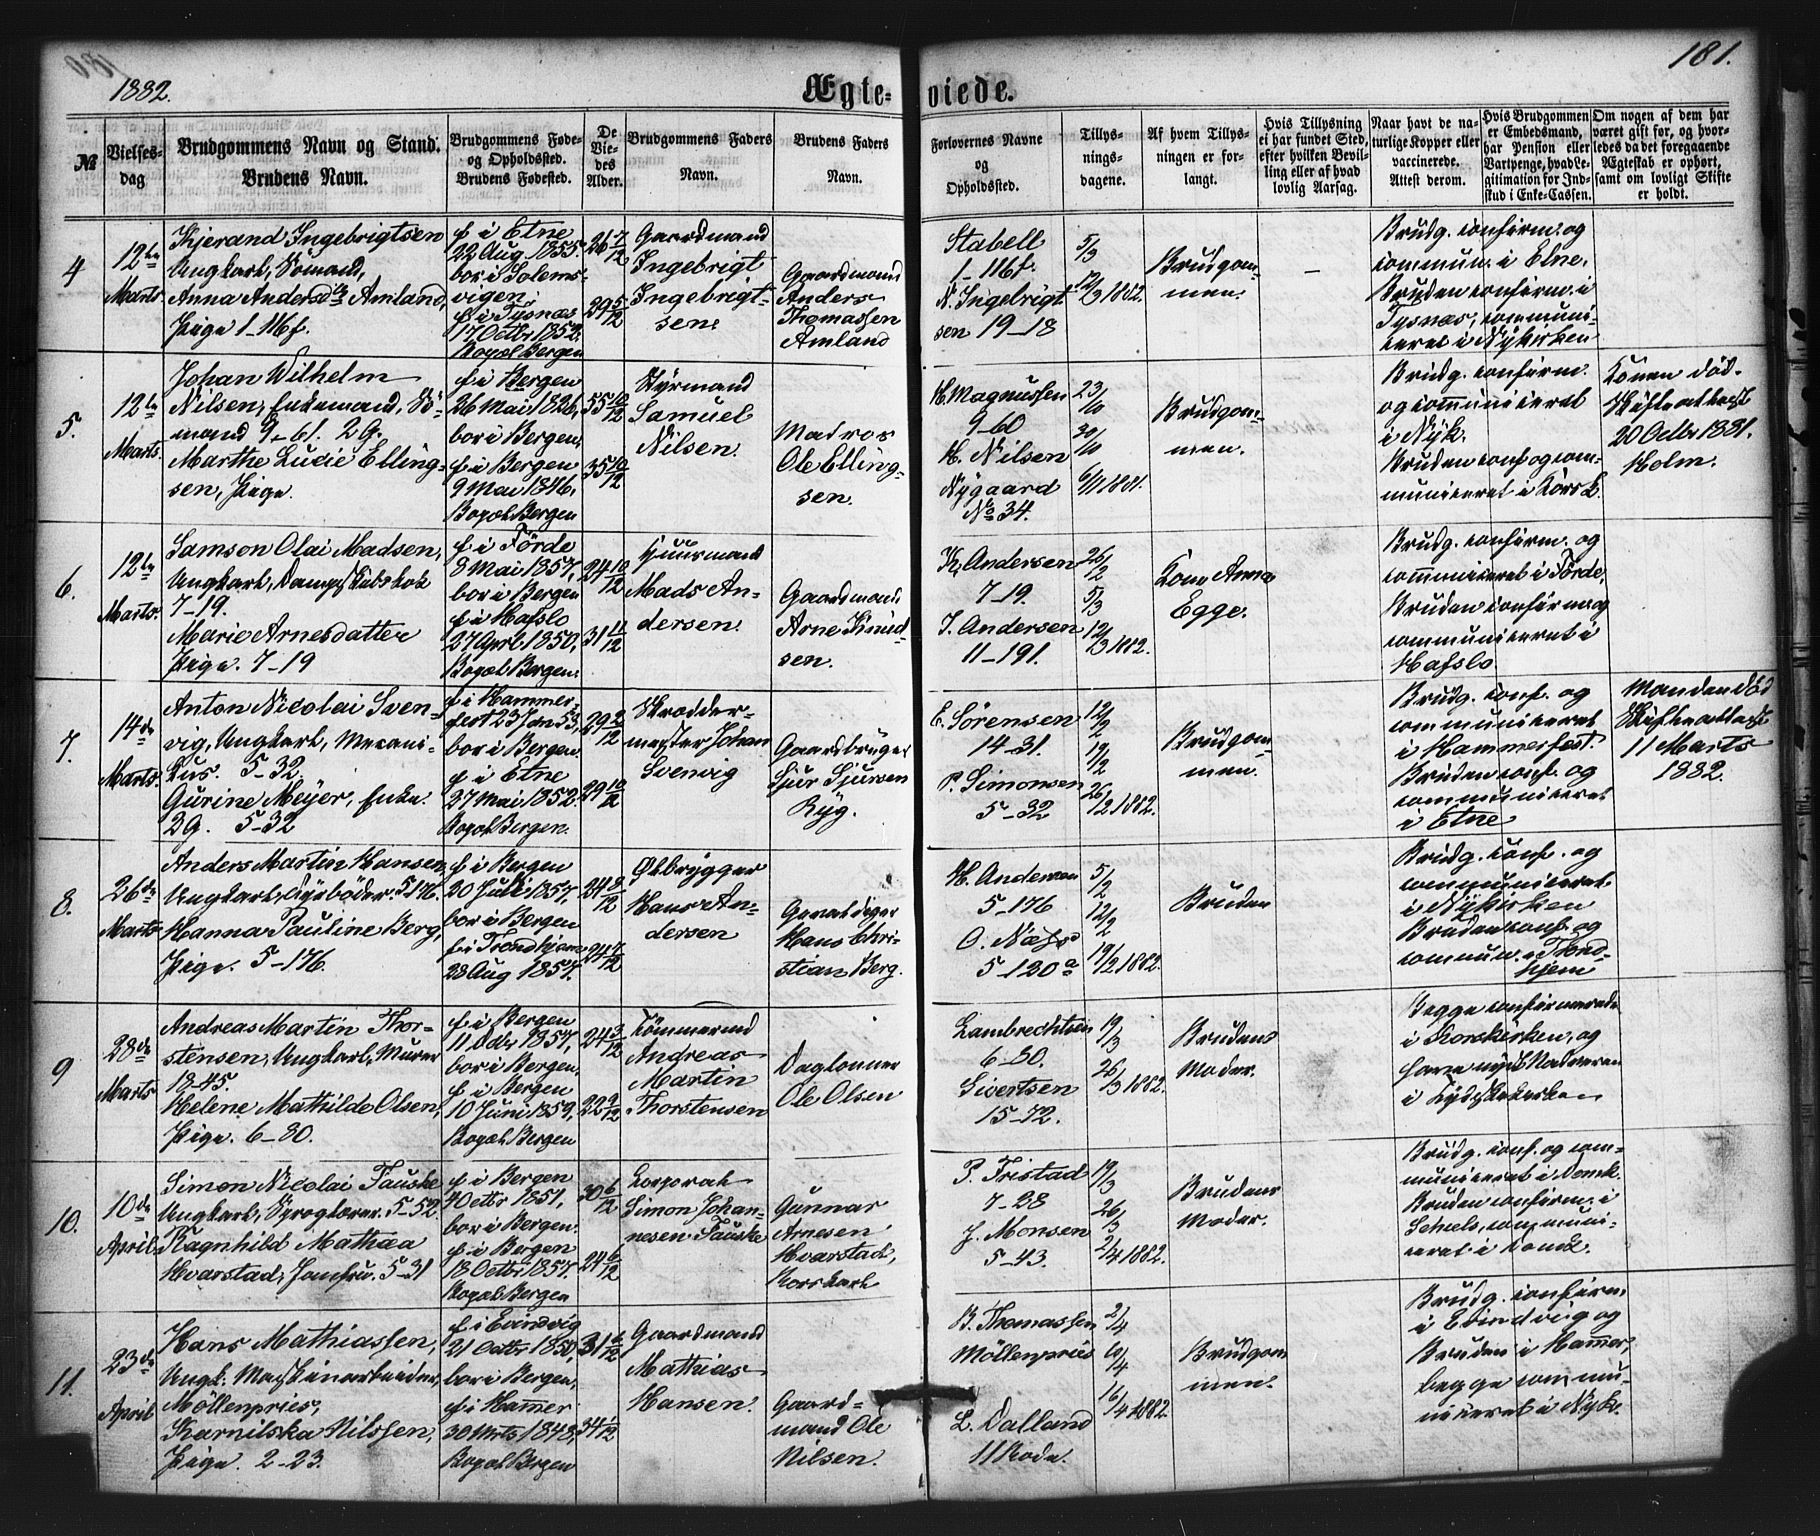 1882.
Ægte-viede.
181.
№
Vielses-
dag
Brudgommens Navn og Stand.
Brudens Navn.
Brudgommens Føde-
og Opholdssted.
Brudens Fødested.
De
Vie-
des
Alder.
Brudgommens Faders
Navn.
Brudens Faders
Navn.
Forlovernes Navne
og
Opholdssted.
Tillys-
nings-
dagene.
Af hvem Tillys-
ningen er for-
langt.
Hvis Tillysning
ei har fundet Sted,
efter hvilken Bevil-
ling eller af hvad
lovlig Aarsag.
Naar havt de na-
turlige Kopper eller
vaccinerede.
Attest derom.
Hvis Brudgommen
er Embedsmand,
har Pension eller
Vartpenge, hvad Le-
gitimation for Ind-
skud i Enke-Cassen.
Om nogen af dem har
været gift før, og hvor-
ledes da det foregaaende
Ægteskab er ophørt,
samt om lovligt Skifte
er holdt.
4
12te
Marts
Kjerand Ingebrigtsen
Ungkarl, Sömand,
Anna Andersd. Amland,
Pige 1-116f.
f i Etne
22 Aug. 1855.
bor i Solems-
vigen
f i Tysnæs
17 Octbr 1852.
Bopæl Bergen
26 7/12
29 5/12
Gaardmand
Ingebrigt
Ingebrigt-
sen.
Gaardmand
Anders
Thomassen
Amland
Stabell
1-116f.
N. Ingebrigt
sen 19-18
5/3
12/3 1882.
Brudgom-
men.
—
Brudg. confirm. og
commun. i Etne.
Bruden confirm. i
Tysnæs, communi-
ceret i Nykirken
5.
12te
Marts.
Johan Wilhelm
Nilsen, Enkemand, Sö-
mand 9-61. 2g.
Marthe Lucie Elling-
sen, Pige.
f i Bergen
26 Mai 1826,
bor i Bergen,
f i Bergen
9 Mai 1846,
Bopæl Bergen
55 10/12
35 10/12
Styrmand
Samuel
Nilsen.
Madros
Ole Elling-
sen.
H. Magnussen
9-60
H. Nilsen
Nygaard
No 34.
23/10
30/10
6/11 1881.
Brudgom-
men.
Brudg. confirm.
og communiceret
i Nyk.
Bruden conf og com-
municeret i Korsk.
Konen död.
Skifteattest
20 Octbr 1881.
Holm.
6.
12te
Marts.
Samson Olai Madsen,
Ungkarl, Dampskibskok
7-19.
Marie Arnesdatter
Pige. 7-19
f i Förde
8 Mai 1857,
bor i Bergen
f i Hafslo
27 Apr. 1850,
Bopæl Bergen.
24 10/12
31 11/12
Huusmand
Mads An-
dersen.
Gaardmand
Arne Knud-
sen.
K. Andersen
7-19.
J. Andersen
11-191.
26/2
5/3
12/3 1882.
Kone Anna
Egge.
Brudg. confirm. og
communiceret i Förde,
Bruden confirm og
communiceret i
Hafslo
7.
14de
Marts.
Anton Nicolai Sven-
vig, Ungkarl, Mecani-
kus. 5-32
Gurine Meyer, Enke.
2g. 5-32
f i Hammer-
fest 23 Jan 53,
bor i Bergen.
f i Etne
27 Mai 1852.
Bopæl Bergen.
29 2/12
29 10/12
Skrædder-
mester Johan
Svenvig
Gaardbruger
Sjur Sjursen
Ryg.
E. Sörensen
14-31.
P. Simonsen
5-32
12/2
19/2
26/2 1882.
Brudgom-
men.
Brudg. conf. og
communiceret
i Hammerfest.
Bruden conf. og
communiceret
i Etne
Manden död
Skifteattest
11 Marts
1882.
8.
26de
Marts
Anders Martin Hansen,
Ungkarl, Fyrböder. 5-176.
Hanna Pauline Berg,
Pige. 5-176.
f i Bergen
20 Juli 1857,
bor i Bergen
f i Trondhjem
28 Aug 1857.
24 8/12
24 7/12
Ölbrygger
Hans An-
dersen
Hans Chri-
stian Berg.
H. Andersen
5-176
O. Næss
5-120a
5/2
12/2
19/2 1882.
Bruden
Brudg. conf. og
communiceret
i Nykirken
Bruden conf. og
commun. i Trond-
hjem
9
28de
Marts
Andreas Martin Thor-
stensen, Ungkarl, Murer
18-45.
Helene Mathilde Olsen,
Pige. 6-80.
f i Bergen
11 Dbr 1857,
bor i Bergen,
f i Bergen
10 Juni 1859,
Bopæl Bergen
24 3/12
22 9/12
Tömmermd
Andreas
Martin
Thorstensen
Daglönner
Ole Olsen
Lambrechtsen
6-80.
Sivertsen
15-72.
19/3
26/3 1882.
Brudens
Moder.
Begge confirmerede
i Korskirken, og
have nydt Nadveren
i Tydskekirken
10.
10de
April
Simon Nicolai Fauske
Ungkarl, Sproglærer. 5-52.
Ragnhild Mathea
Hvarstad, Jomfru. 5-31
f i Bergen
4 Octbr 1851,
bor i Bergen.
f i Bergen
18 Octbr 1857.
Bopæl Bergen
30 6/12
24 6/12
Corporal
Simon Johan-
nesen Fauske
Gunnar
Arnesen
Hvarstad,
Korskarl
P. Tristad
7-28
J. Monsen
5-43.
19/3
26/3
2/4 1882.
Brudens
Moder.
Brudg. conf. og com-
municeret i Domk.
Bruden confirm. i
communi-
ceret i Domk.
11.
23de
April
Hans Mathiassen,
Ungk. Maskinarbeider,
Möllenpriis,
Karnilska Nilssen,
Pige. 2-23.
f i Evindvig
21 Octbr 1850,
bor i Bergen,
f i Hammer
30 Mrts 1848,
Bopæl Bergen
31 6/12
34 1/12
Gaardmand
Mathias
Hansen.
Gaard-
mand Ole
Nilsen.
B. Thomassen
Möllenpriis
L. Dalland
11 Rode.
2/4
10/4
16/4 1882.
Brudgom
men.
Brudg. confirm.
i Evindvig og
Bruden i Hammer,
begge commu-
niceret i Nyk.